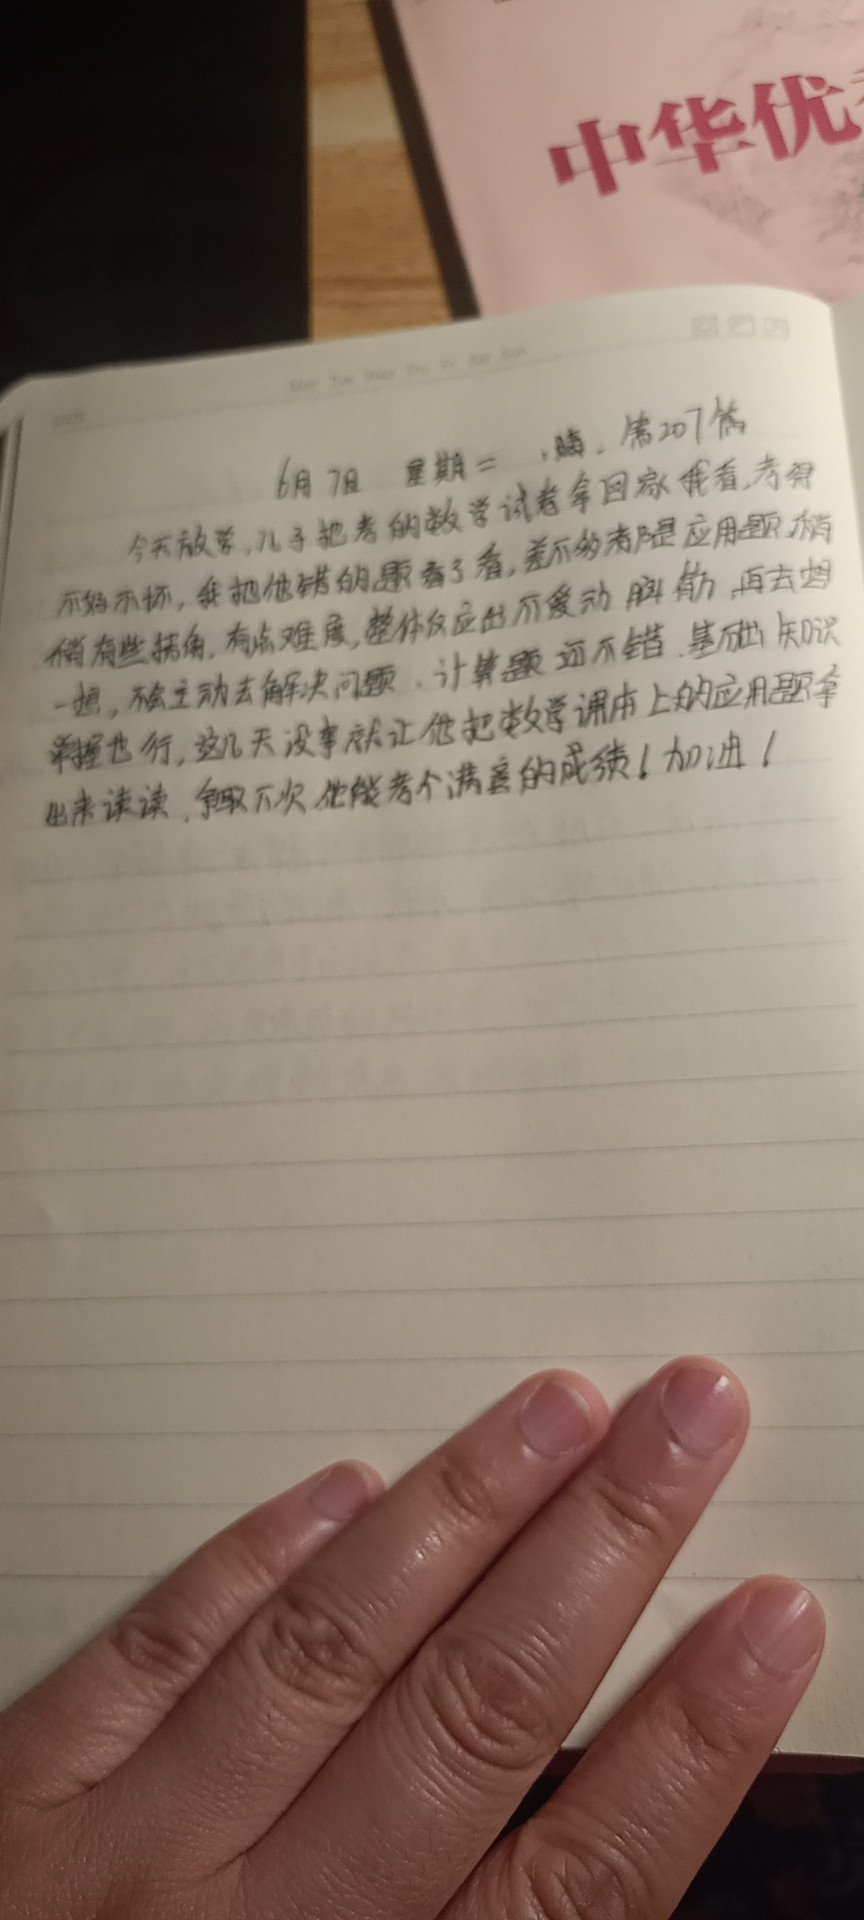 中华优
Mon Tue Wed Thu Fri Sat Sun
6月7日 星期二 晴. 第207篇
今天放学,儿子把考的数学试卷拿回家我看,考得
不好不坏,我把他错的题看了看,差不多都是应用题,稍
稍有些拐角,有点难度,整体反应出不爱动脑筋,再去想
一想,不会主动去解决问题.计算题还不错.基础知识
掌握也行,这几天没事就让他把数学课本上的应用题拿
出来读读,争取下次他能考个满意的成绩!加油!